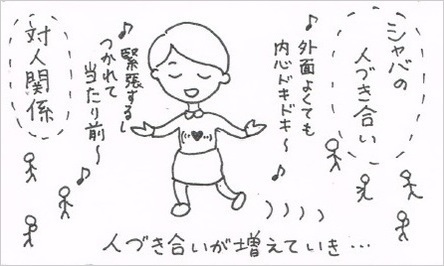 シャバの
人づき合い
♪外面よくても
内心ドキドキ〜♪
♪緊張するし
つかれて
当たり前〜♪
対人関係
人づき合いが増えていき…